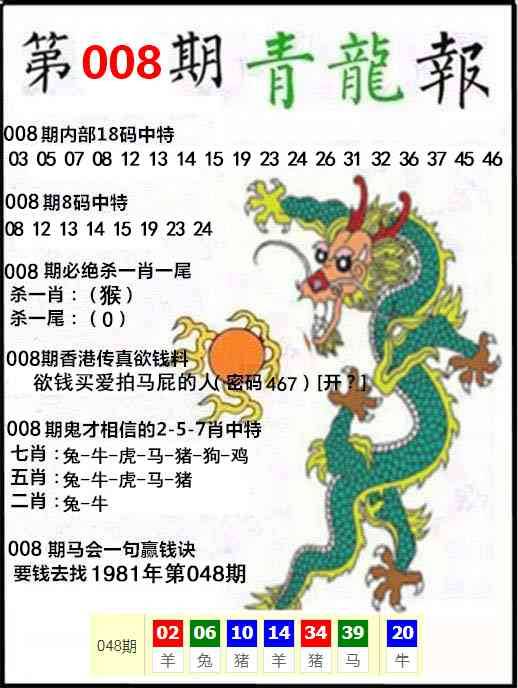 第008期 青龍報
008期内部18码中特
03 05 07 08 12 13 14 15 19 23 24 26 31 32 36 37 45 46
008期8码中特
08 12 13 14 15 19 23 24
008 期必绝杀一肖一尾
杀一肖：（猴）
杀一尾：（0）
008期香港传真欲钱料
欲钱买爱拍马屁的人（密码467）[开？]
008期鬼才相信的2-5-7肖中特
七肖：兔-牛-虎-马-猪-狗-鸡
五肖：兔-牛-虎-马-猪
二肖：兔-牛
008 期马会一句赢钱诀
要钱去找1981年第048期
048期 02 06 10 14 34 39 20
羊 兔 猪 羊 猪 马 牛